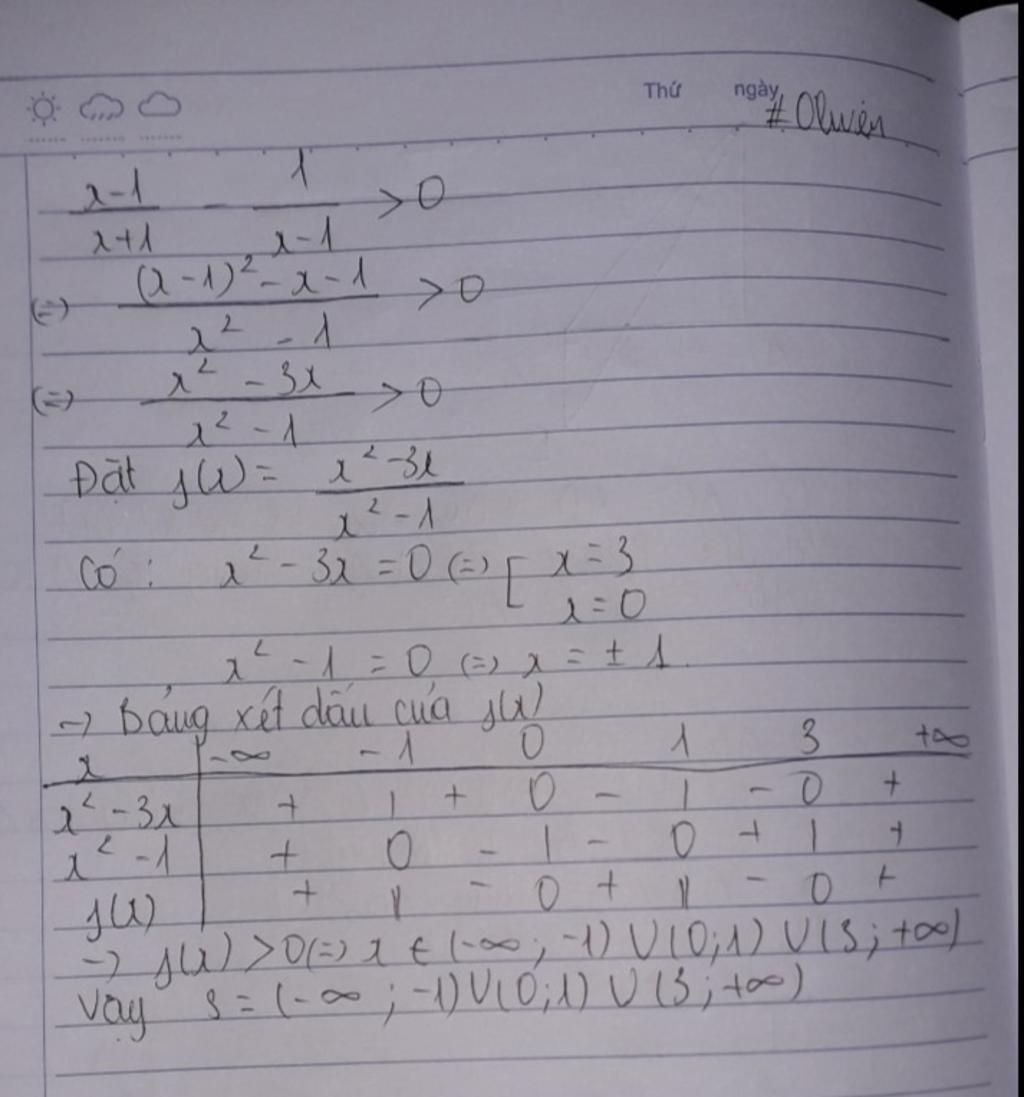 Thứ ngày
# Olwen
x-1/x+1 - 1/x-1 > 0
(=) (x-1)² - x - 1/x² - 1 > 0
(=) x² - 3x/x² - 1 > 0
Đặt f(x) = x² - 3x/x² - 1
Có : x² - 3x = 0 (=) [ x = 3
x = 0
x² - 1 = 0 (=) x = ± 1
→ Bảng xét dấu của f(x)
x | -∞ -1 0 1 3 +∞
x² - 3x | + | + 0 - | - 0 +
x² - 1 | + 0 - | - 0 + | +
f(x) | + || - 0 + || - 0 +
→ f(x) > 0 (=) x ∈ (-∞ ; -1) ∪ (0;1) ∪ (3 ; +∞)
Vậy S = (-∞ ; -1) ∪ (0;1) ∪ (3 ; +∞)